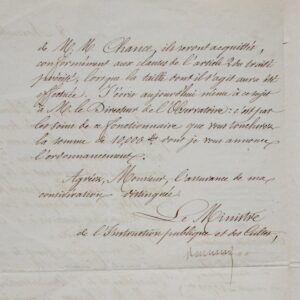 de M.M. Chance, ils seront acquittés,
conformément aux clauses de l'article 2 du traité
précité, lorsque la taille dont il s'agit aura été
effectuée. J'écris aujourd'hui même à ce sujet
à M. le Directeur de l'Observatoire : c'est par
les soins de ce fonctionnaire que vous toucherez
la somme de 10,000 dont je vous annonce
l'ordonnancement.
Agréez, Monsieur, l'assurance de ma
considération distinguée.
Le Ministre
de l'Instruction publique et des Cultes,